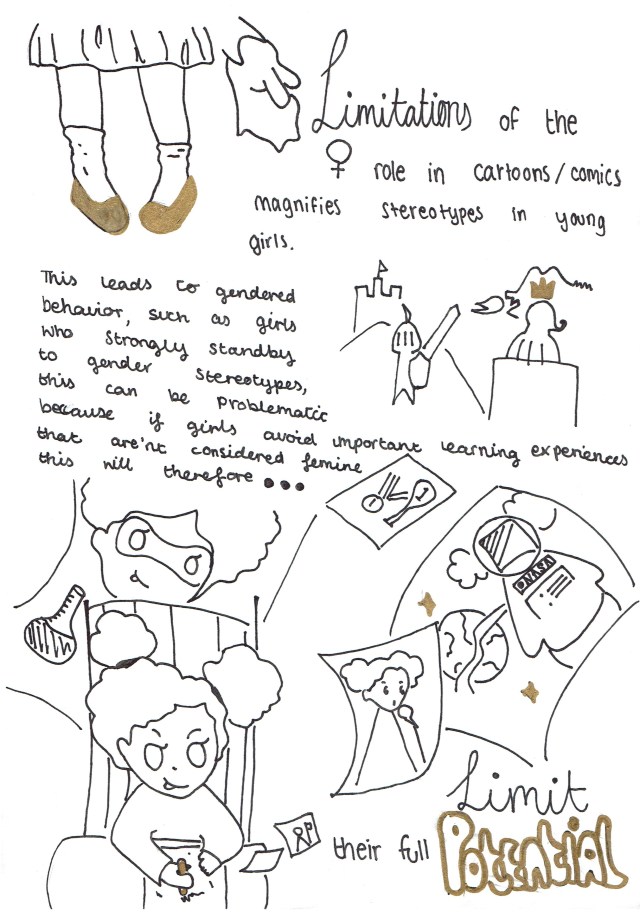 Limitations of the
♀ role in cartoons/comics
magnifies stereotypes in young
girls.
This leads to gendered
behavior, such as girls
who strongly standby
to gender stereotypes,
this can be problematic
because if girls avoid important learning experiences
that are'nt considered femine
this will therefore ...
1
1
NASA
Limit
their full Potential